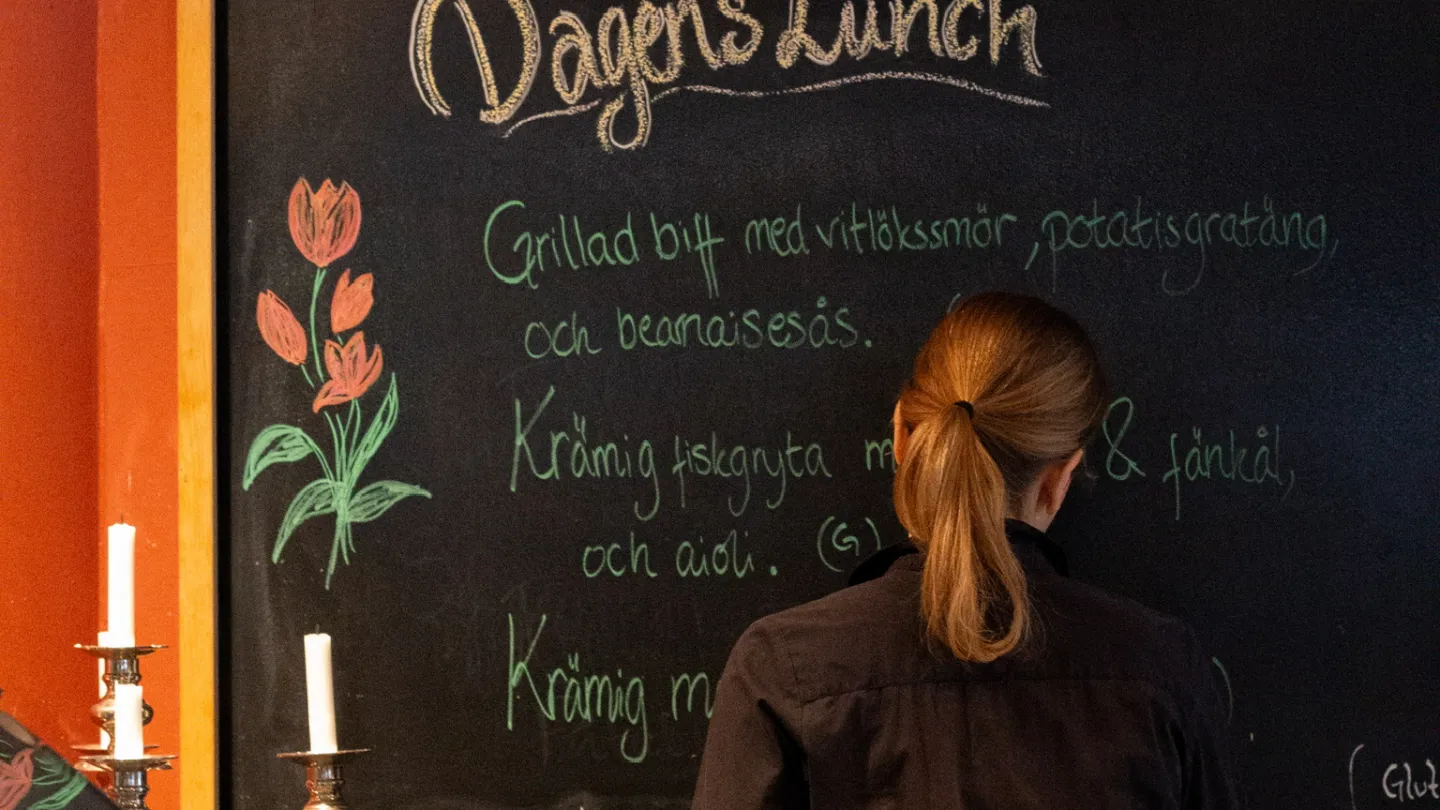 Dagens Lunch
Grillad biff med vitlökssmör, potatisgratäng,
och bearnaisesås.
Krämig fiskgryta & fänkål,
och aioli. (G)
Krämig